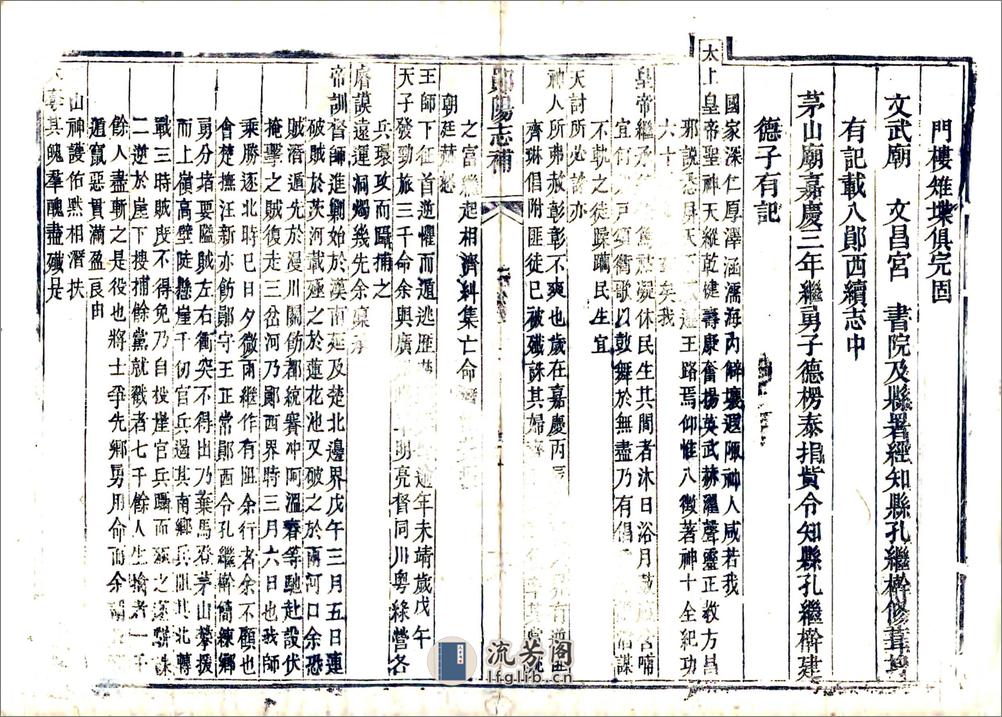 門樓雉堞俱完固
文武廟　文昌宮　書院及縣署經知縣孔繼榦修葺
有記載入鄖西續志中
茅山廟嘉慶三年繼勇子德楞泰捐貲令知縣孔繼榦建
德子有記
國家深仁厚澤涵濡海內解壤遐陬神人咸若我
太上皇帝聖神天縱乾健壽康奮揚英武赫濯聲靈正教方昌
邪說悉屏天下王路焉仰惟八徵著神十全紀功
六十我
皇帝繼休民生其間者沐日浴月
宜衢歌以鼓舞於無盡乃有倡謀
不軌之徒蹂躪民生宜
天討所必誅亦
神人所弗赦彰彰不爽也歲在嘉慶丙有
齊琳倡附匪徒已被殲誅其婦齊
鄖陽志補
之富繼起相濟糾集亡命
朝廷赫怒
王師下征首逆懼而遁逃匪年未靖歲戊午
天子發勁旅三千命余與廣明亮督同川粵綠營各
兵環攻而躡捕之
睿謨遠運洞燭幾先余稟承
帝訓督師進勦始於漢南延及楚北邊界戊午三月五日連
破賊於茨河截殛之於蓮花池又破之於兩河口余恐
賊潛遁先於漫川關飭都統賽冲阿溫春等馳赴設伏
掩擊之賊復走三岔河乃鄖西界時三月六日也我師
乘勝逐北時已日夕微雨繼作有阻余行者余不顧也
會楚撫汪新亦飭鄖守王正常鄖西令孔繼榦簡練鄉
勇分堵要隘賊左右衝突不得出乃棄馬奔茅山攀援
而上嶺高壁陡懸崖千仞官兵過其南鄉兵阻其北轉
戰三時賊度不得免乃自投崖官兵躡而殛之遂駢誅
二逆於崖下搜捕餘黨就戮者七千餘人生擒者一千
餘人盡斬之是役也將士爭先鄉勇用命而余
遁竄惡貫滿盈良由
山神護佑默相潛扶
奪其魄羣醜盡殲是
流芳閣
lfglib.cn